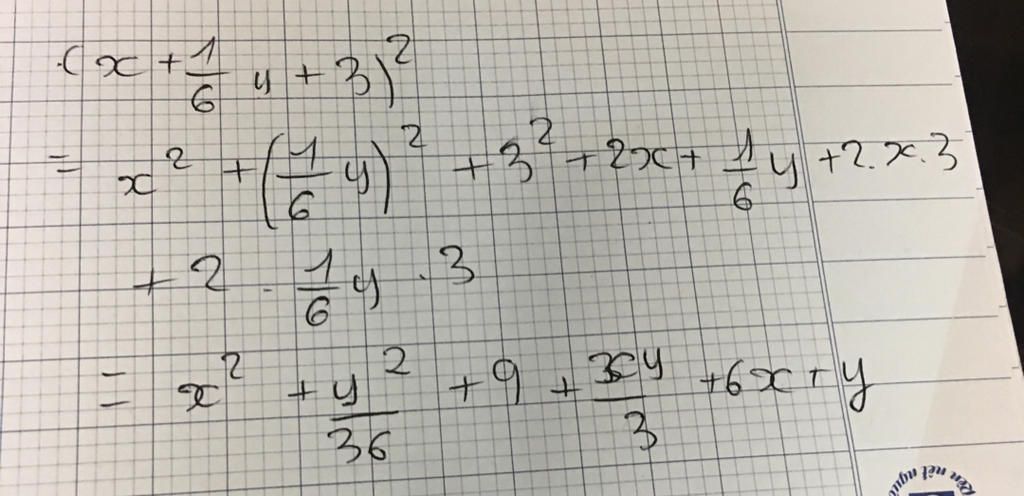 (x + 1/6 y + 3)²
= x² + (1/6 y)² + 3² + 2x + 1/6 y + 2.x.3
+ 2 . 1/6 y . 3
= x² + y²/36 + 9 + xy/3 + 6x + y
Rèn nét ngư